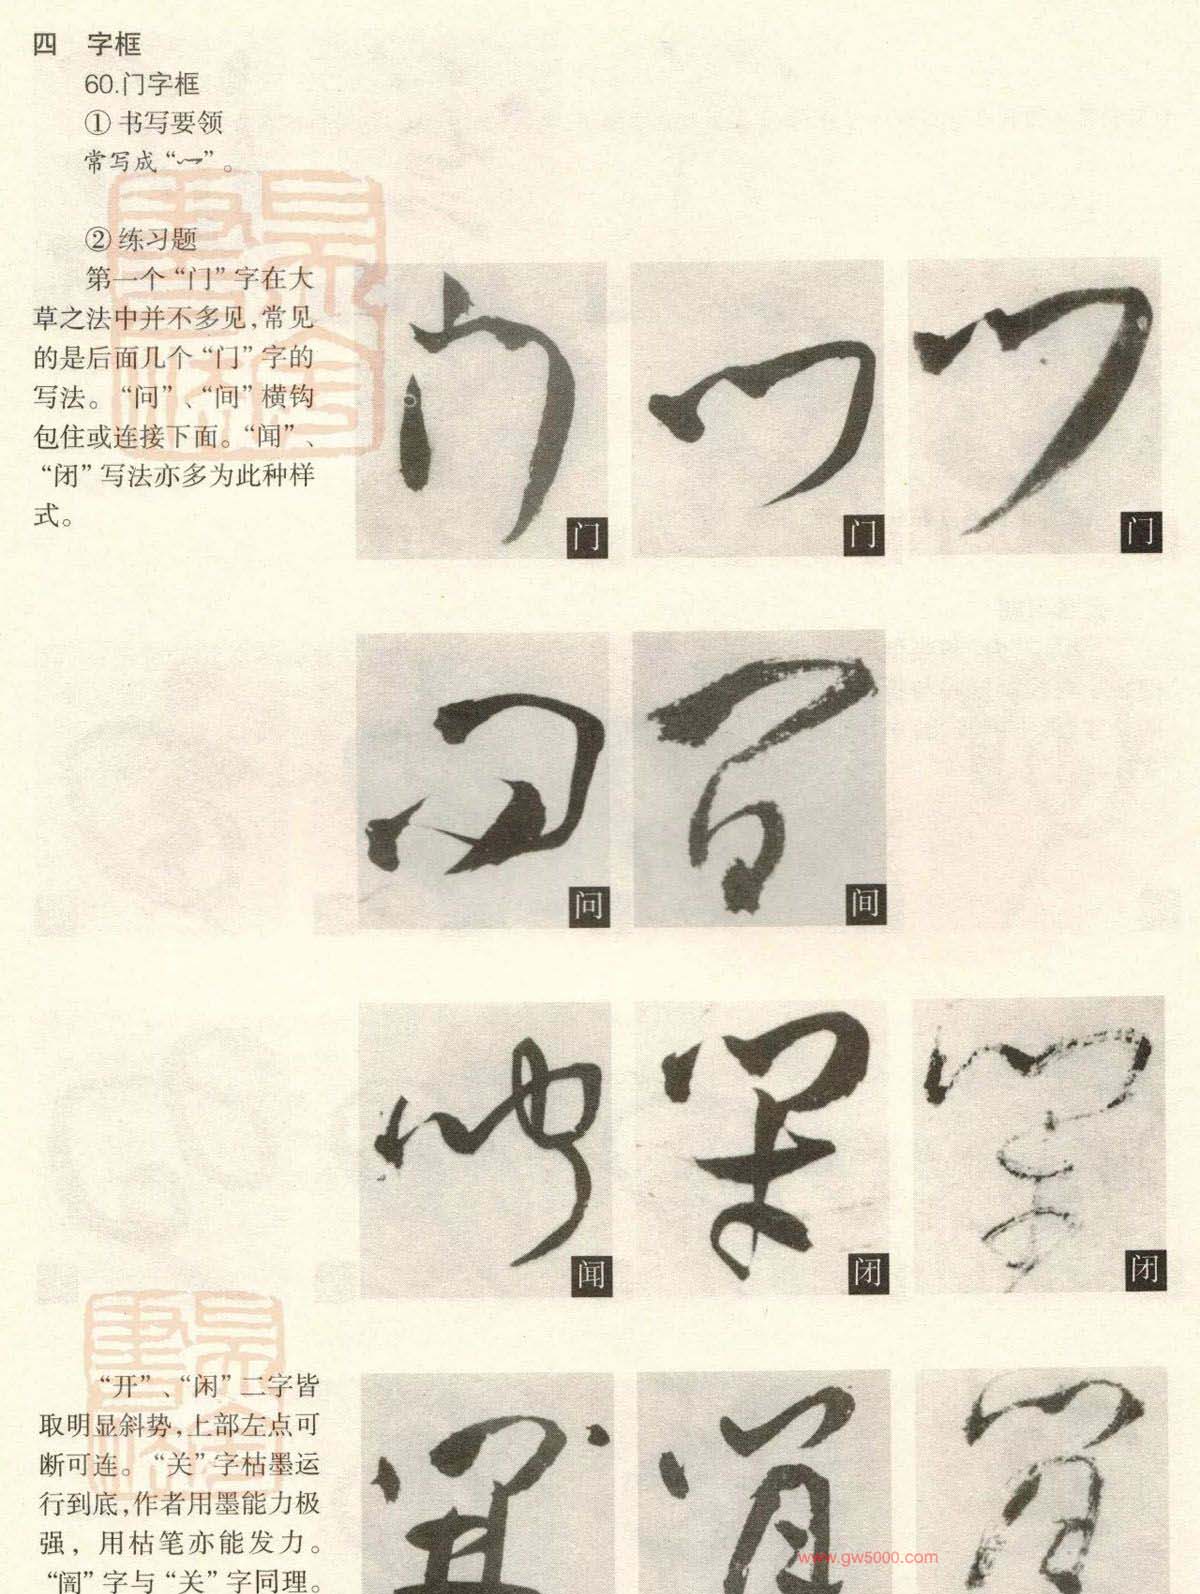 四 字框
60.门字框
① 书写要领
常写成“⺳”。
② 练习题
第一个“门”字在大
草之法中并不多见,常见
的是后面几个“门”字的
写法。“问”、“间”横钩
包住或连接下面。“闻”、
“闭”写法亦多为此种样
式。
门
门
门
问
间
闻
闭
闭
“开”、“闲”二字皆
取明显斜势,上部左点可
断可连。“关”字枯墨运
行到底,作者用墨能力极
强，用枯笔亦能发力。
“阁”字与“关”字同理。
www.gw5000.com